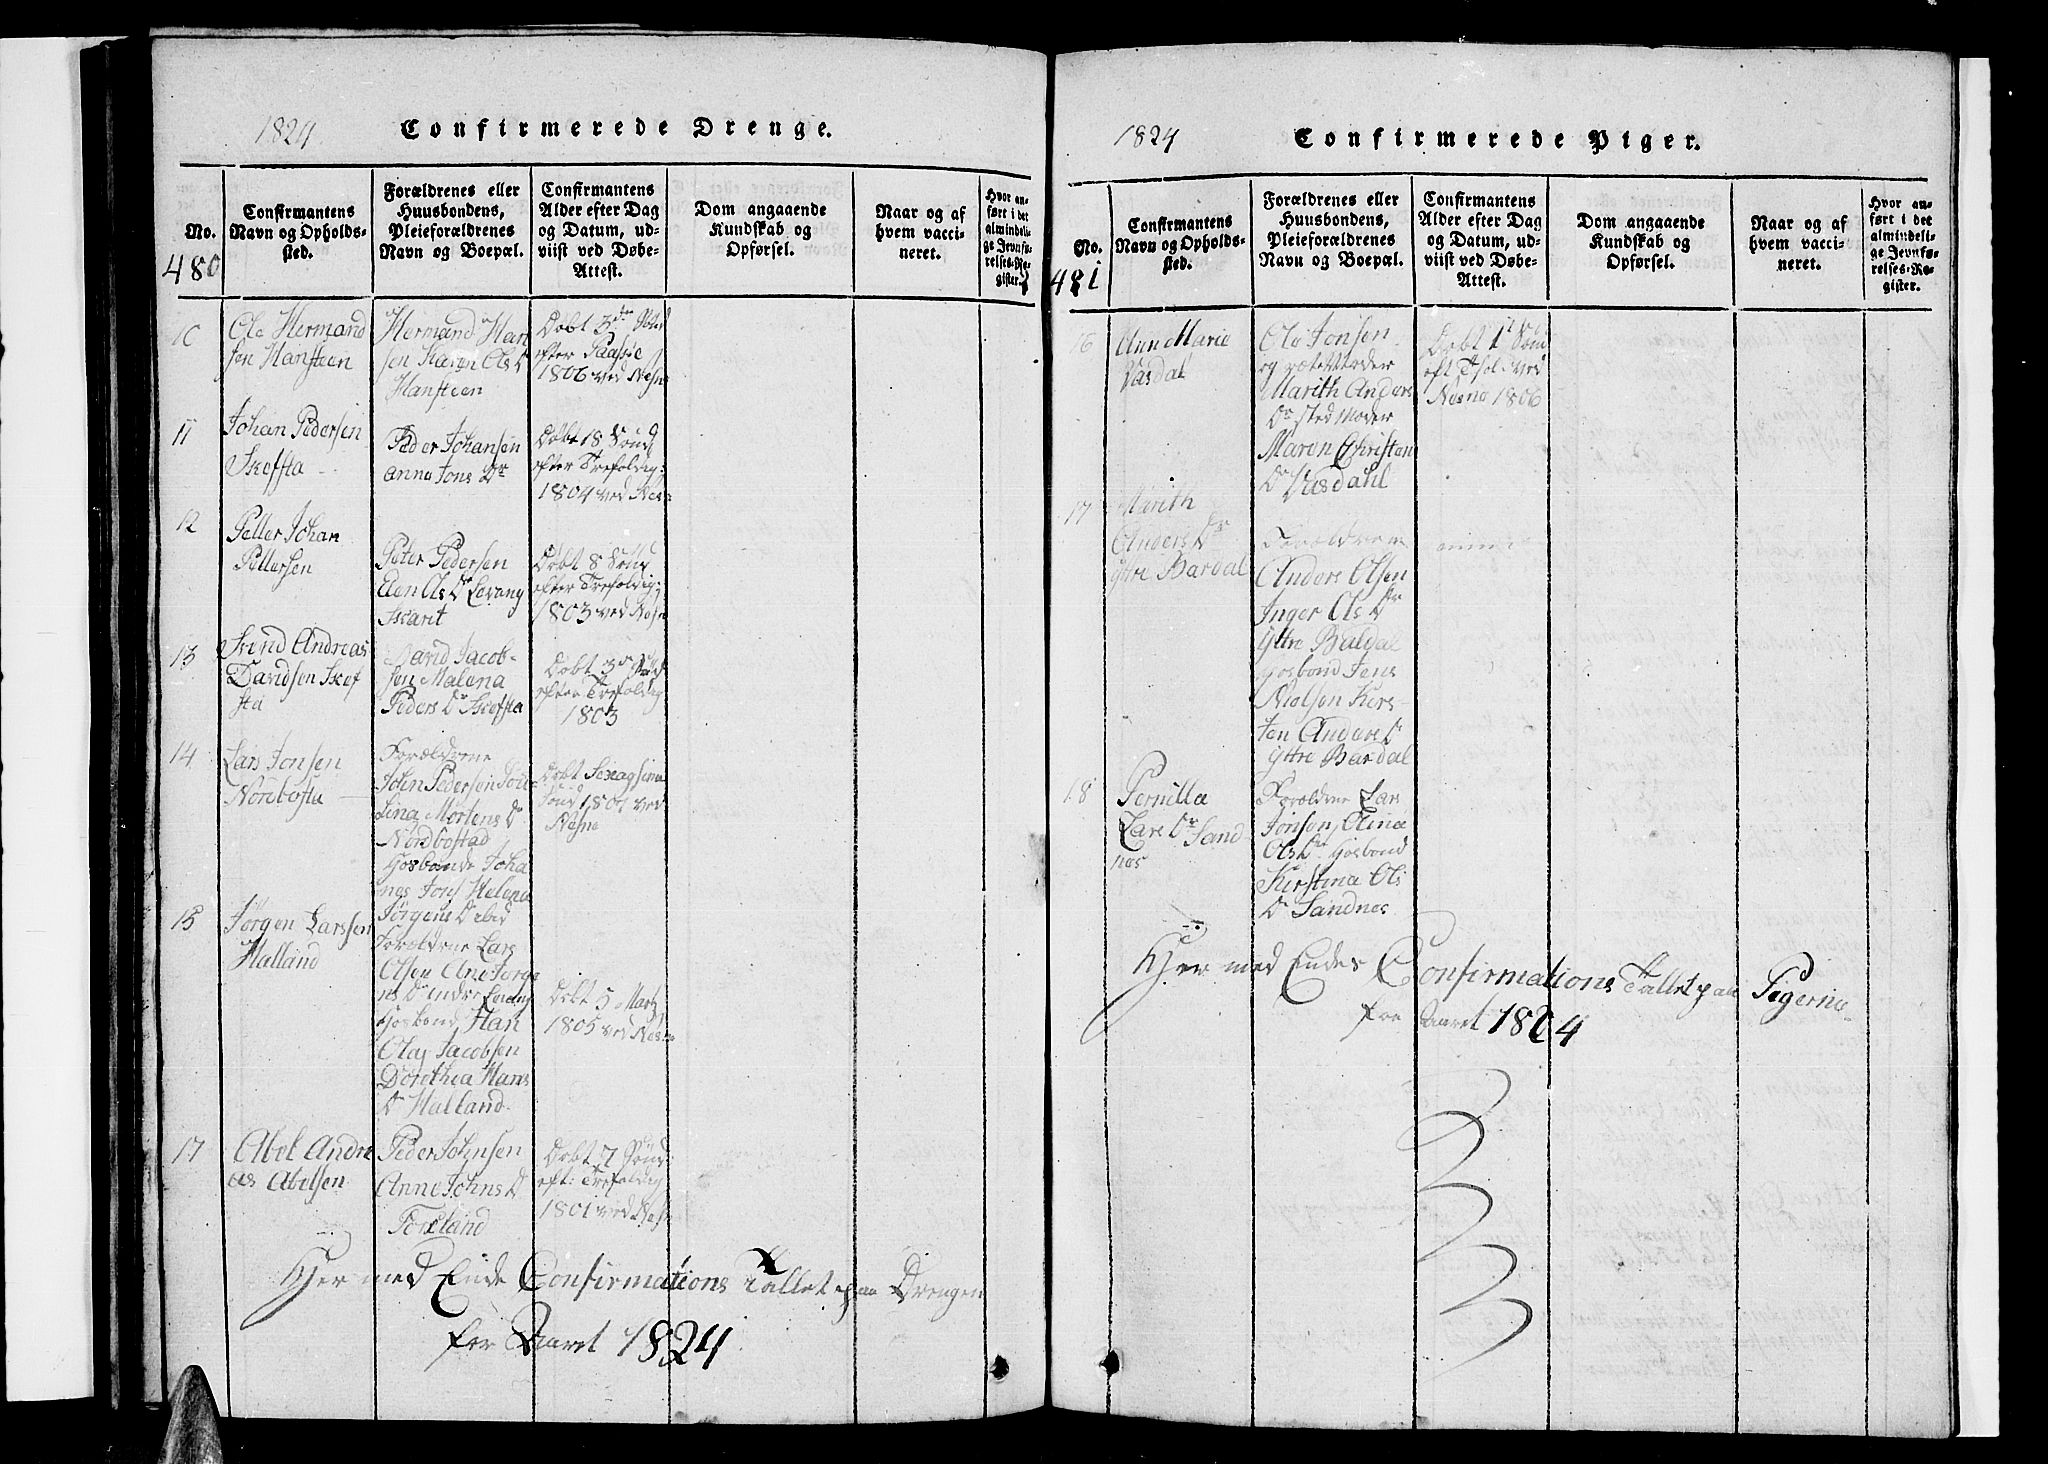 1824
Confirmerede Drenge.
No.
480
Confirmantens
Navn og Opholds-
sted.
Forældrenes eller
Huusbondens,
Pleieforældrenes
Navn og Boepæl.
Confirmantens
Alder efter Dag
og Datum, ud-
viist ved Døbe-
Attest.
Dom angaaende
Kundskab og
Opførsel.
Naar og af
hvem vacci-
neret.
Hvor an-
ført i det
almindeli-
ge Jevnfø-
relses-Re-
gister.
10
Ole Hermand
sen Hansteen
Hermand Han
sen Karen Ols D
Hansteen
Døbt 3de
efter Paaske
1806 ved Nesne
11
Johan Pedersen
Skefsta
Peder Johansen
Anna Jons Dr
Døbt 18 Sønd
efter Trefoldig:
1804 ved Nes
12
Petter Johan
Pettersen
Peter Pedersen
Ols Dr Levang
Døbt 8 Sønd
efter Trefoldig:
1803 ved Nesne
13
Andreas
Davidsen Skef
sta
David Jacob-
sen Malena
Peders Dr Skefsta
Døbt 3de
efter Trefoldig
1803
14
Lars Jonsen
Norbosta
Forældrene
John Pedersen
Mortens Dr
Nordbostad
Hosbonde Joha
nes Jons Helena
Jørgens D ibid
Døbt Sexagsima
Sønd 180 ved
Nesne
15
Jørgen Larssen
Halland
Forældrene Lars
Olsen Ane Jørge
ns D indre Levang
Hosbond Han
Olaj Jacobsen
Dorothea Hans
D Halland.
Døbt 5 Martz
1805 ved Nesne
17
Abel Andre
as Abelsen
Peder Johnsen
Anne Johns D
Forsland
Døbt 7 Sønd:
eft: Trefoldig
1801 ved Nesn
Hjer med Ende Confirmations Tallet paa Drengen
for Aaret 1824
1824
Confirmerede Piger.
No.
481
Confirmantens
Navn og Opholds-
sted.
Forældrenes eller
Huusbondens,
Pleieforældrenes
Navn og Boepæl.
Confirmantens
Alder efter Dag
og Datum, ud-
viist ved Døbe-
Attest.
Dom angaaende
Kundskab og
Opførsel.
Naar og af
hvem vacci-
neret.
Hvor an-
ført i det
almindeli-
ge Jevnfø-
relses-Re-
gister.
16
Ann Marie
Vasdal
Ole Jonsen
og rette Moder
Marith Anders
Dr sted Moder
Maren Christen
Dr Vasdahl
Døbt 1st Sønd
eft ved
Nesne 1806
17
Marith
Anders Dr
Ittre Bardal
Forældrene
Anders Olsen
Inger Ols Dr
Ittre Baldal
Hosbond Jens
Nielsen Kers-
ten Anders D
Ittre Bardal
18
Pernilla
Lars Dr Sand
nes
Forældrene Lars
Jonsen, Olina
Ols Dr Hosbond
Kirstina Ols
D Sandnes
Hjer med Endes Confirmations Tallet paa Pigerne
for Aaret 1824